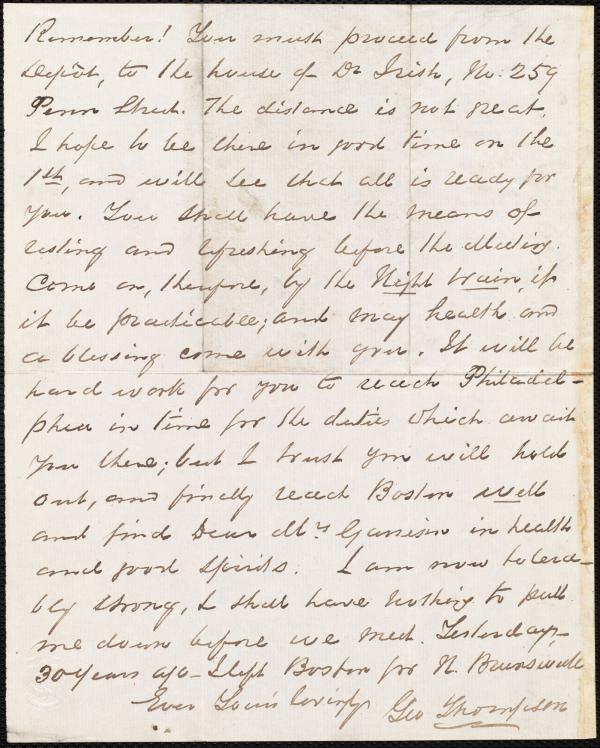 Remember! You must proceed from the
Depôt, to the house of Dr Irish, No. 259
Penn Street. The distance is not great.
I hope to be there in good time on the
1st, and will see that all is ready for
you. You shall have the means of
resting and refreshing before the Meeting.
Come on, therefore, by the Night train, if
it be practicable; and may health and
a blessing come with you. It will be
hard work for you to reach Philadel-
phia in time for the duties which await
you there; but I trust you will hold
out, and finally reach Boston well
and find Dear Mrs Garrison in health
and good spirits. I am now tolera-
bly strong, & shall have nothing to pull
me down before we meet. Yesterday,
30 years ago - I left Boston for N. Brunswick
Ever Yours lovingly Geo Thompson